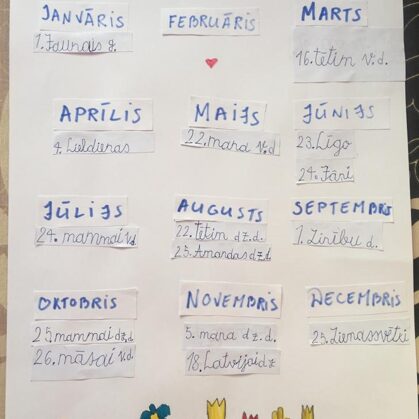 JANVĀRIS
1. Jaunais g.
FEBRUĀRIS
MARTS
16. tētim v.d.
APRĪLIS
4. Lieldienas
MAIJS
22. mana v.d
JŪNIJS
23. Līgo
24. Jāņi
JŪLIJS
24. mammai v.d
AUGUSTS
22. Tētim dz.d.
25. Amandas dz.d.
SEPTEMBRIS
1. Zinību d.
OKTOBRIS
25 mammai dz.d.
26. māsai v.d
NOVEMBRIS
5. mana dz.d.
18. Latvijai dz
DECEMBRIS
25. Ziemassvētki